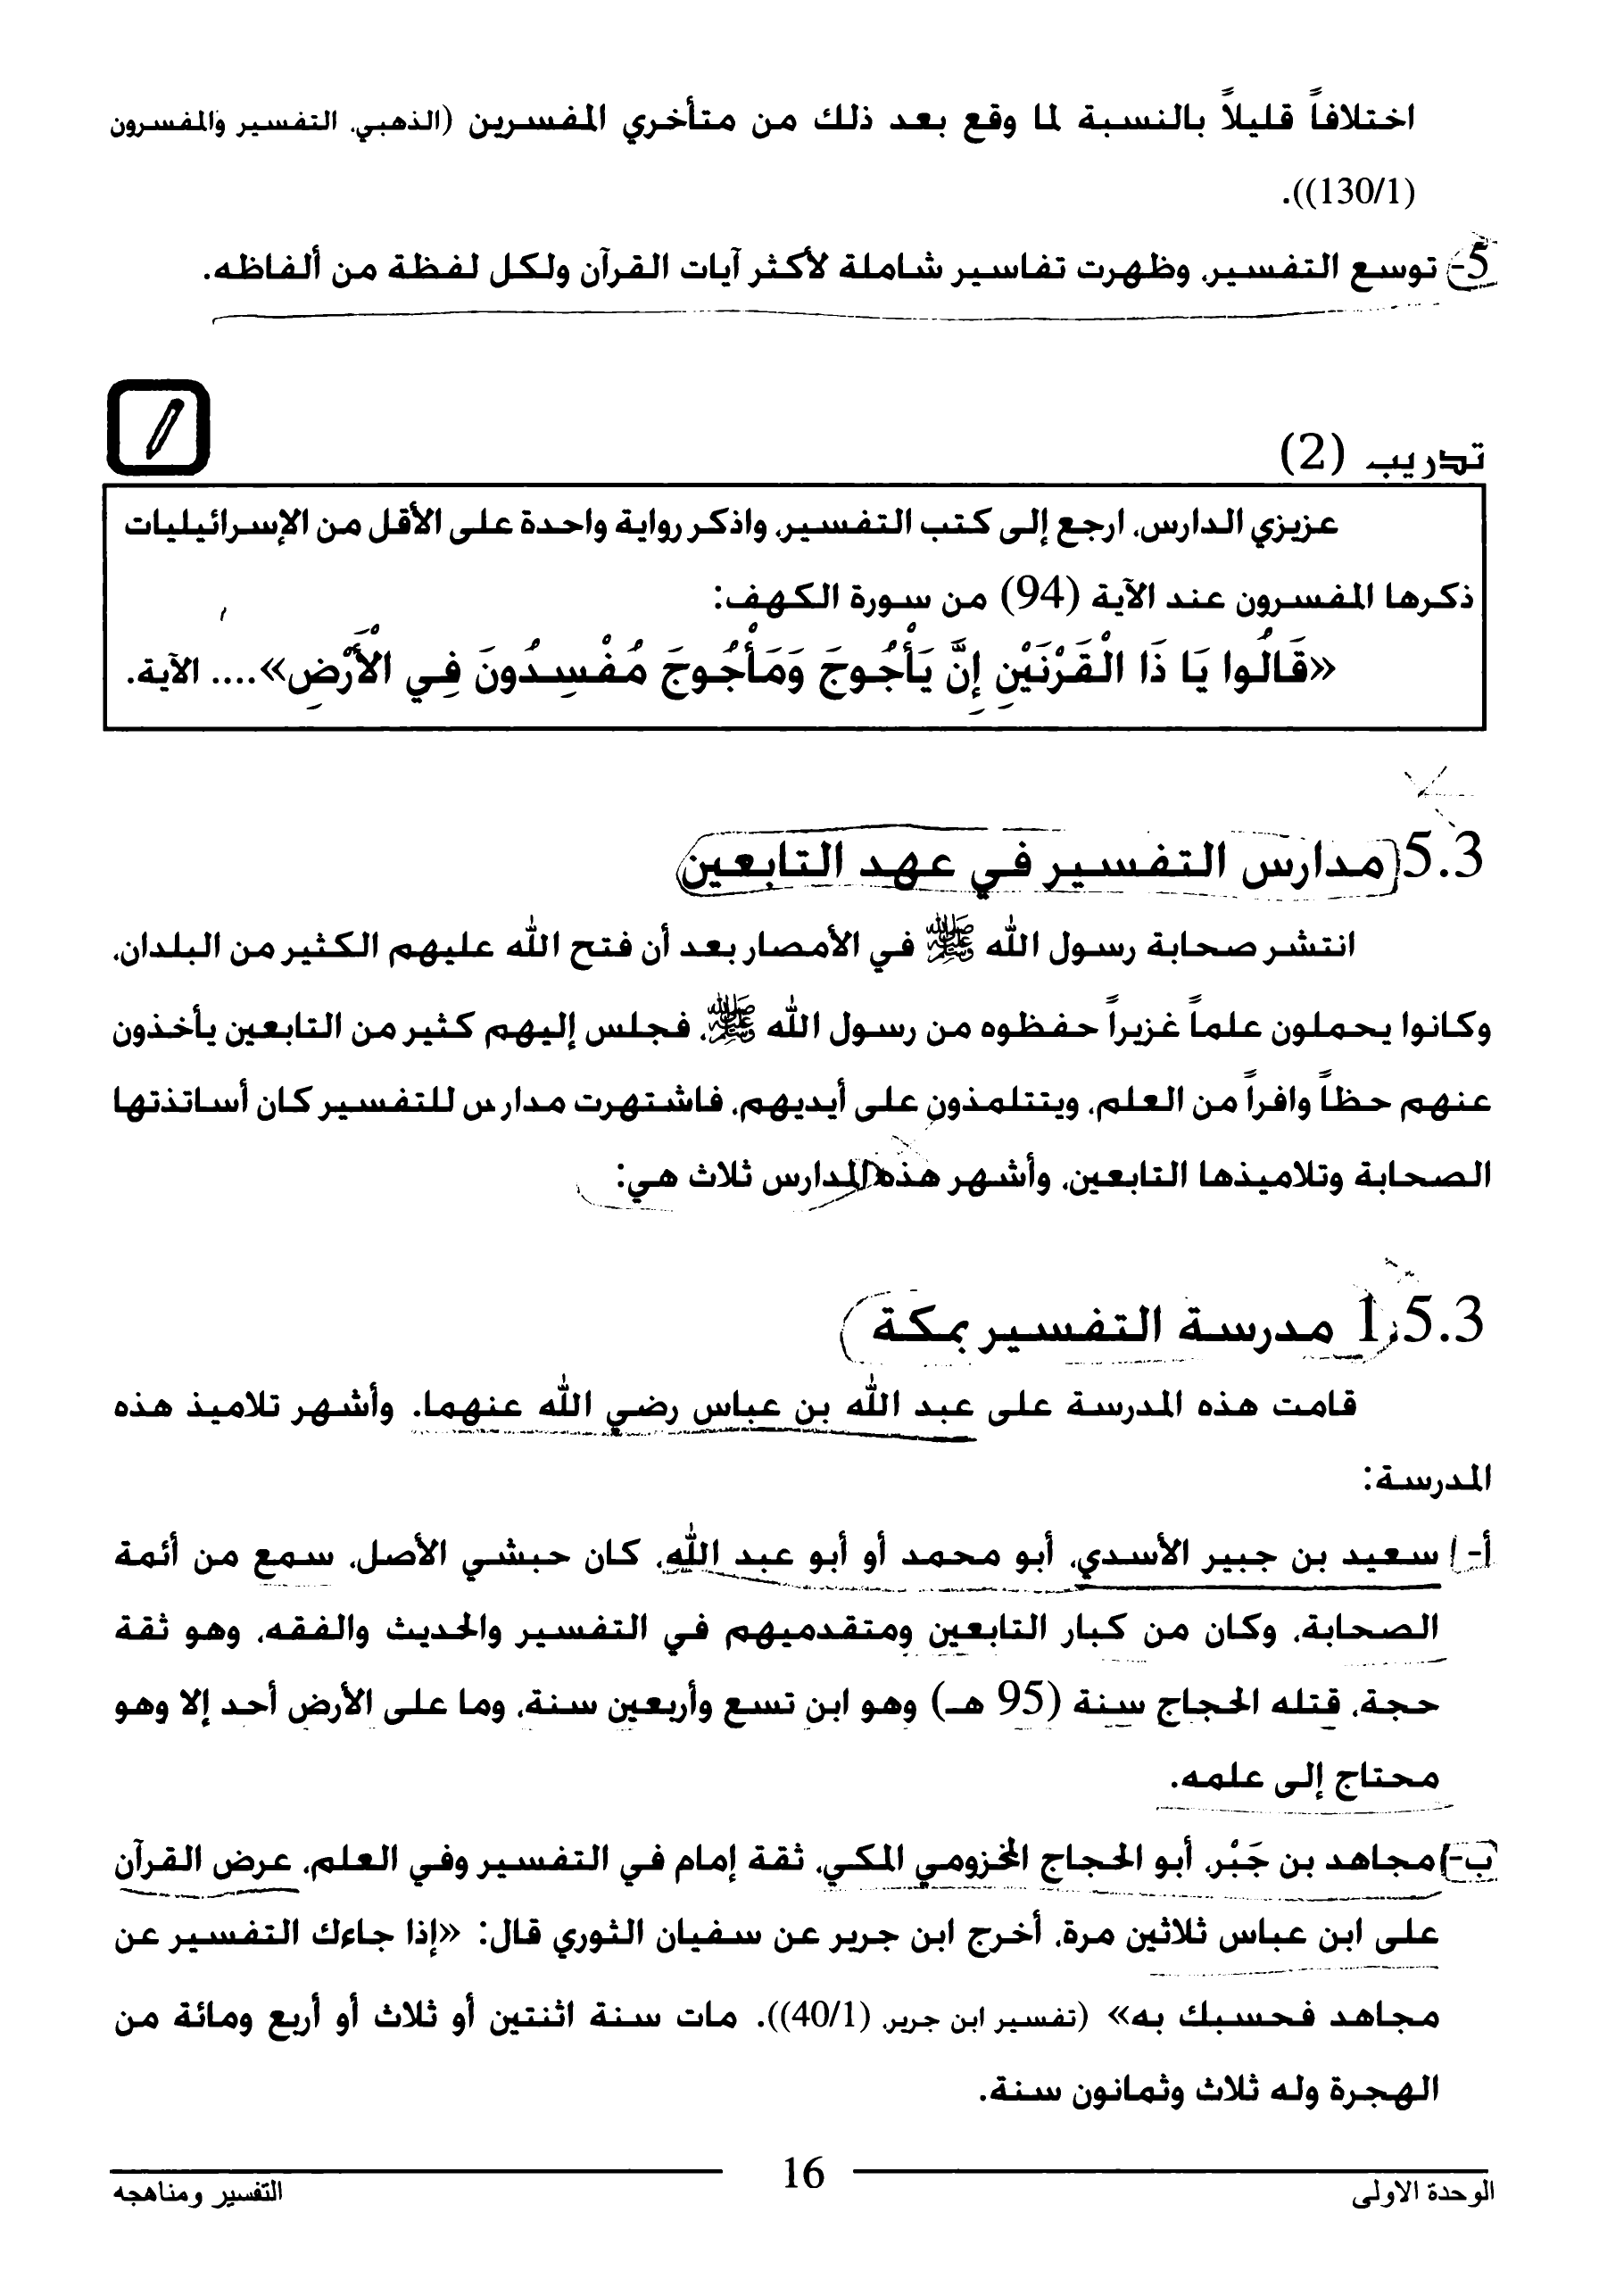 اختلافاً قليلاً بالنسبة لما وقع بعد ذلك من متأخري المفسرين (الذهبي، التفسير والمفسرون
(130/1)).
5- توسع التفسير، وظهرت تفاسير شاملة لأكثر آيات القرآن ولكل لفظة من ألفاظه.
تدريب (2)
عزيزي الدارس، ارجع إلى كتب التفسير، واذكر رواية واحدة على الأقل من الإسرائيليات
ذكرها المفسرون عند الآية (94) من سورة الكهف:
«قَالُوا يَا ذَا الْقَرْنَيْنِ إِنَّ يَأْجُوجَ وَمَأْجُوجَ مُفْسِدُونَ فِي الْأَرْضِ».... الآية.
5.3 مدارس التفسير في عهد التابعين
انتشر صحابة رسول الله ﷺ في الأمصار بعد أن فتح الله عليهم الكثير من البلدان،
وكانوا يحملون علماً غزيراً حفظوه من رسول الله ﷺ، فجلس إليهم كثير من التابعين يأخذون
عنهم حظاً وافراً من العلم، ويتتلمذون على أيديهم، فاشتهرت مدارس للتفسير كان أساتذتها
الصحابة وتلاميذها التابعين، وأشهر هذه المدارس ثلاث هي:
1.5.3 مدرسة التفسير بمكة
قامت هذه المدرسة على عبد الله بن عباس رضي الله عنهما. وأشهر تلاميذ هذه
المدرسة:
أ- سعيد بن جبير الأسدي، أبو محمد أو أبو عبد الله، كان حبشي الأصل، سمع من أئمة
الصحابة، وكان من كبار التابعين ومتقدميهم في التفسير والحديث والفقه، وهو ثقة
حجة، قتله الحجاج سنة (95 هـ) وهو ابن تسع وأربعين سنة، وما على الأرض أحد إلا وهو
محتاج إلى علمه.
ب- مجاهد بن جَبْر، أبو الحجاج المخزومي المكي، ثقة إمام في التفسير وفي العلم، عرض القرآن
على ابن عباس ثلاثين مرة، أخرج ابن جرير عن سفيان الثوري قال: «إذا جاءك التفسير عن
مجاهد فحسبك به» (تفسير ابن جرير، (40/1)). مات سنة اثنتين أو ثلاث أو أربع ومائة من
الهجرة وله ثلاث وثمانون سنة.
الوحدة الاولى
16
التفسير ومناهجه